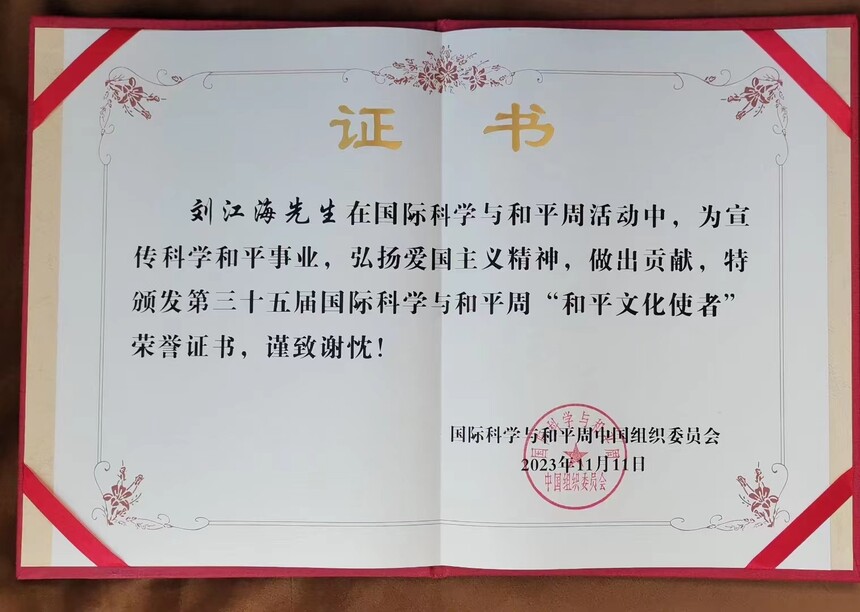 证 书
刘江海先生在国际科学与和平周活动中，为宣
传科学和平事业，弘扬爱国主义精神，做出贡献，特
颁发第三十五届国际科学与和平周“和平文化使者”
荣誉证书，谨致谢忱！
国际科学与和平周中国组织委员会
2023年11月11日
中国组织委员会